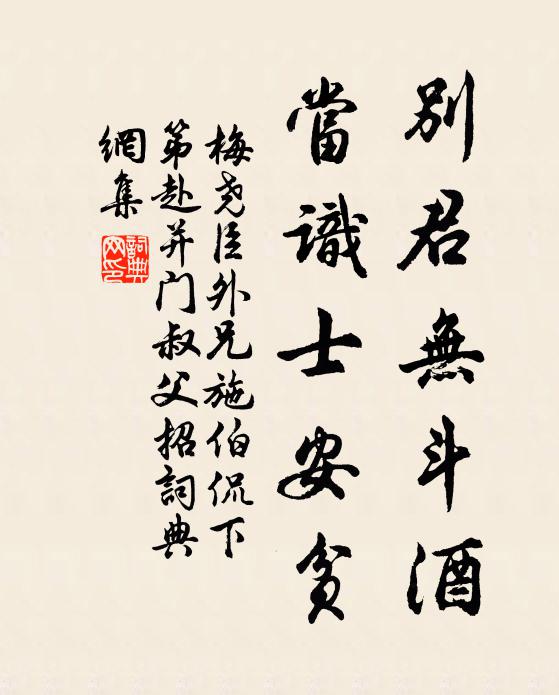 別君無斗酒
當識士安貧
梅尧臣外兄施伯侃下
第赴并门叔父招詞典
網集
詞典網印